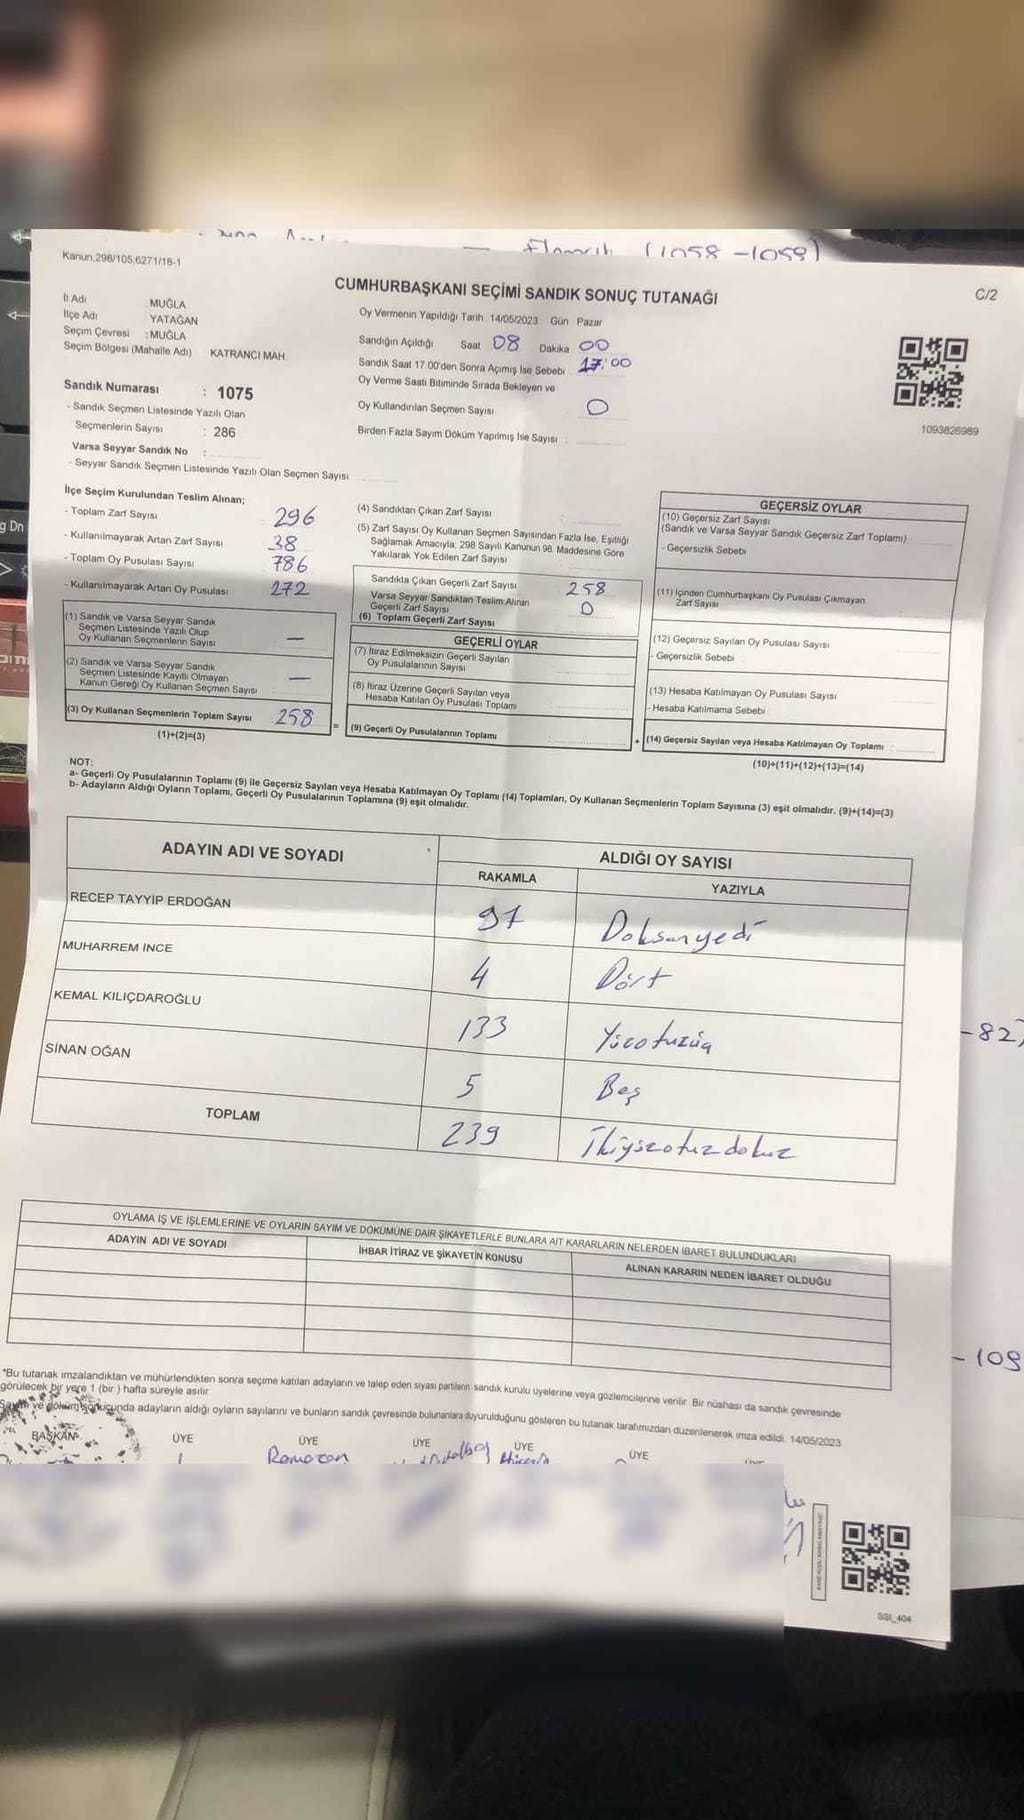 Elmacık (1058-1059)
Kanun:298/105,6271/18-1
C/2
CUMHURBAŞKANI SEÇİMİ SANDIK SONUÇ TUTANAĞI
İl Adı MUĞLA
İlçe Adı YATAĞAN
Seçim Çevresi : MUĞLA
Seçim Bölgesi (Mahalle Adı) KATRANCI MAH.
Sandık Numarası : 1075
- Sandık Seçmen Listesinde Yazılı Olan
Seçmenlerin Sayısı : 286
Varsa Seyyar Sandık No :
- Seyyar Sandık Seçmen Listesinde Yazılı Olan Seçmen Sayısı
Oy Vermenin Yapıldığı Tarih 14/05/2023 Gün Pazar
Sandığın Açıldığı Saat 08 Dakika 00
Sandık Saat 17.00'den Sonra Açımış İse Sebebi 17:00
Oy Verme Saati Bitiminde Sırada Bekleyen ve
Oy Kullandırılan Seçmen Sayısı 0
Birden Fazla Sayım Döküm Yapılmış İse Sayısı :
1093826989
İlçe Seçim Kurulundan Teslim Alınan;
- Toplam Zarf Sayısı 296
- Kullanılmayarak Artan Zarf Sayısı 38
- Toplam Oy Pusulası Sayısı 786
- Kullanılmayarak Artan Oy Pusulası 272
(1) Sandık ve Varsa Seyyar Sandık
Seçmen Listesinde Yazılı Olup
Oy Kullanan Seçmenlerin Sayısı —
(2) Sandık ve Varsa Seyyar Sandık
Seçmen Listesinde Kayıtlı Olmayan
Kanun Gereği Oy Kullanan Seçmen Sayısı —
(3) Oy Kullanan Seçmenlerin Toplam Sayısı 258
(1)+(2)=(3)
(4) Sandıktan Çıkan Zarf Sayısı :
(5) Zarf Sayısı Oy Kullanan Seçmen Sayısından Fazla İse, Eşitliği
Sağlamak Amacıyla, 298 Sayılı Kanunun 98. Maddesine Göre
Yakılarak Yok Edilen Zarf Sayısı
Sandıkta Çıkan Geçerli Zarf Sayısı 258
Varsa Seyyar Sandıktan Teslim Alınan
Geçerli Zarf Sayısı 0
(6) Toplam Geçerli Zarf Sayısı
GEÇERLİ OYLAR
(7) İtiraz Edilmeksizin Geçerli Sayılan
Oy Pusulalarının Sayısı
(8) İtiraz Üzerine Geçerli Sayılan veya
Hesaba Katılan Oy Pusulası Toplamı
= (9) Geçerli Oy Pusulalarının Toplamı
GEÇERSİZ OYLAR
(10) Geçersiz Zarf Sayısı
(Sandık ve Varsa Seyyar Sandık Geçersiz Zarf Toplamı)
- Geçersizlik Sebebi
(11) İçinden Cumhurbaşkanı Oy Pusulası Çıkmayan
Zarf Sayısı
(12) Geçersiz Sayılan Oy Pusulası Sayısı
- Geçersizlik Sebebi
(13) Hesaba Katılmayan Oy Pusulası Sayısı
- Hesaba Katılmama Sebebi
+ (14) Geçersiz Sayılan veya Hesaba Katılmayan Oy Toplamı :
(10)+(11)+(12)+(13)=(14)
NOT:
a- Geçerli Oy Pusulalarının Toplamı (9) ile Geçersiz Sayılan veya Hesaba Katılmayan Oy Toplamı (14) Toplamları, Oy Kullanan Seçmenlerin Toplam Sayısına (3) eşit olmalıdır. (9)+(14)=(3)
b- Adayların Aldığı Oyların Toplamı, Geçerli Oy Pusulalarının Toplamına (9) eşit olmalıdır.
ADAYIN ADI VE SOYADI ALDIĞI OY SAYISI
RAKAMLA YAZIYLA
RECEP TAYYİP ERDOĞAN 97 Doksanyedi
MUHARREM İNCE 4 Dört
KEMAL KILIÇDAROĞLU 133 Yüzotuzüç
SİNAN OĞAN 5 Beş
TOPLAM 239 İkiyüzotuzdokuz
-827
OYLAMA İŞ VE İŞLEMLERİNE VE OYLARIN SAYIM VE DÖKÜMÜNE DAİR ŞİKAYETLERLE BUNLARA AİT KARARLARIN NELERDEN İBARET BULUNDUKLARI
ADAYIN ADI VE SOYADI İHBAR İTİRAZ VE ŞİKAYETİN KONUSU ALINAN KARARIN NEDEN İBARET OLDUĞU
-109
*Bu tutanak imzalandıktan ve mühürlendikten sonra seçime katılan adayların ve talep eden siyasi partilerin sandık kurulu üyelerine veya gözlemcilerine verilir. Bir nüshası da sandık çevresinde
görülecek bir yere 1 (bir ) hafta süreyle asılır.
Sayım ve döküm sonucunda adayların aldığı oyların sayılarını ve bunların sandık çevresinde bulunanlara duyurulduğunu gösteren bu tutanak tarafımızdan düzenlenerek imza edildi. 14/05/2023
BAŞKAN ÜYE ÜYE ÜYE ÜYE ÜYE
Ramazan
SSI_404